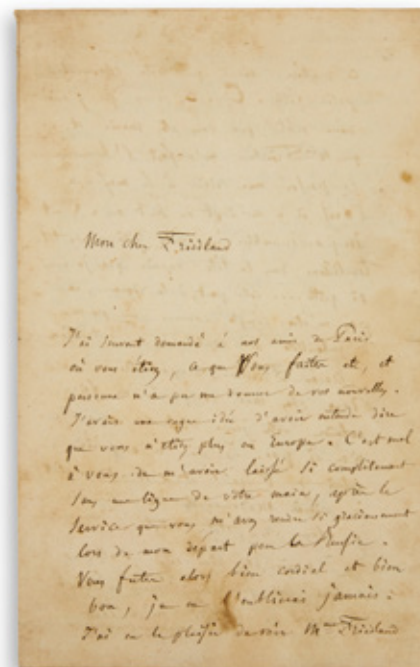 Mon cher Friedland
J'ai souvent demandé à nos amis de Paris
où vous étiez, ce que vous faites et, et
personne n'a pu me donner de vos nouvelles.
J'avais une vague idée d'avoir entendu dire
que vous n'étiez plus en Europe. C'est mal
à vous de m'avoir laissé si complètement
sans une ligne de votre main, après le
service que vous m'avez rendu si gracieusement
lors de mon départ pour la Russie.
Vous futes alors bien cordial et bien
bon, je ne l'oublierai jamais.
J'ai eu le plaisir de voir Mme Friedland